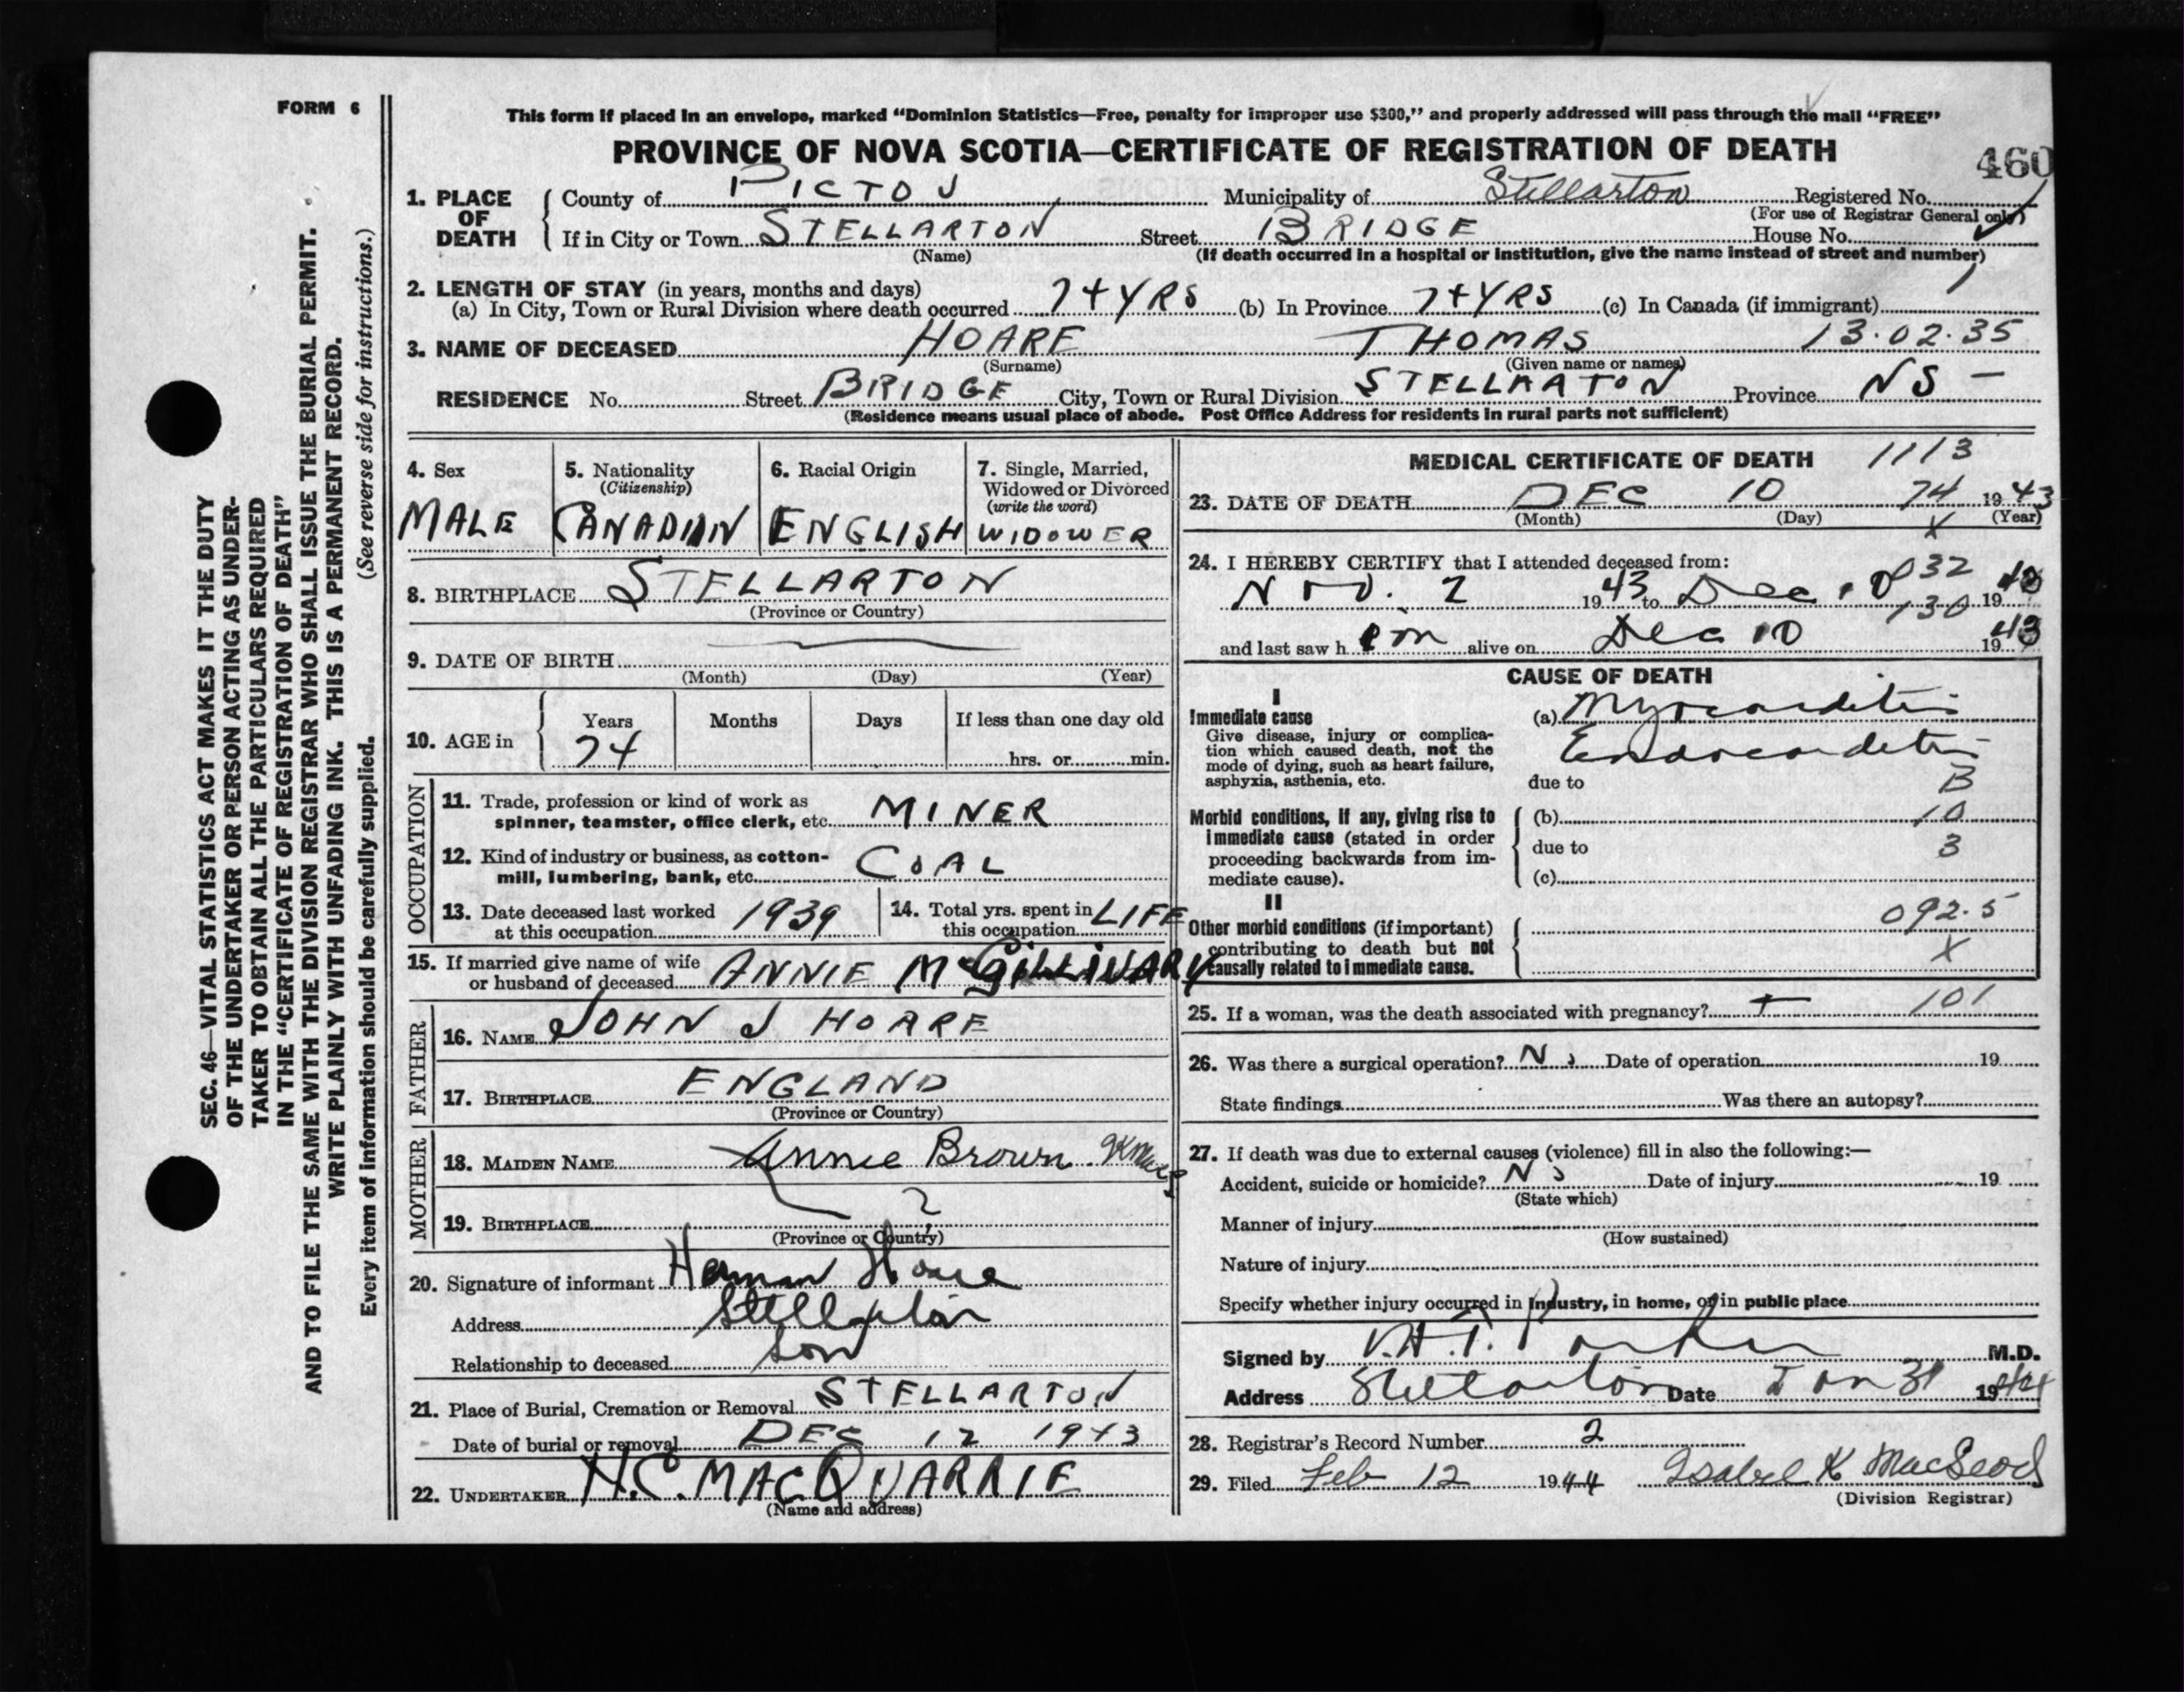 FORM 6
This form if placed in an envelope, marked "Dominion Statistics—Free, penalty for improper use $300," and properly addressed will pass through the mail "FREE"
PROVINCE OF NOVA SCOTIA—CERTIFICATE OF REGISTRATION OF DEATH
460
1. PLACE OF DEATH
County of PICTOU Municipality of Stellarton Registered No.
(For use of Registrar General only)
If in City or Town STELLARTON Street BRIDGE House No.
(Name) (If death occurred in a hospital or institution, give the name instead of street and number)
2. LENGTH OF STAY (in years, months and days)
(a) In City, Town or Rural Division where death occurred 74 YRS (b) In Province 74 YRS (c) In Canada (if immigrant)
3. NAME OF DECEASED HOARE THOMAS 13.02.35
(Surname) (Given name or names)
RESIDENCE No. Street BRIDGE City, Town or Rural Division STELLARTON Province NS —
(Residence means usual place of abode. Post Office Address for residents in rural parts not sufficient)
4. Sex
MALE
5. Nationality
(Citizenship)
CANADIAN
6. Racial Origin
ENGLISH
7. Single, Married,
Widowed or Divorced
(write the word)
WIDOWER
8. BIRTHPLACE STELLARTON
(Province or Country)
9. DATE OF BIRTH
(Month) (Day) (Year)
10. AGE in
Years Months Days If less than one day old
74 hrs. or min.
OCCUPATION
11. Trade, profession or kind of work as
spinner, teamster, office clerk, etc. MINER
12. Kind of industry or business, as cotton-
mill, lumbering, bank, etc. COAL
13. Date deceased last worked
at this occupation 1939
14. Total yrs. spent in
this occupation LIFE
15. If married give name of wife
or husband of deceased ANNIE McGILLIVARY
FATHER
16. NAME JOHN J HOARE
17. BIRTHPLACE ENGLAND
(Province or Country)
MOTHER
18. MAIDEN NAME Annie Brown
19. BIRTHPLACE ?
(Province or Country)
20. Signature of informant Herman Hoare
Address Stellarton
Relationship to deceased Son
21. Place of Burial, Cremation or Removal STELLARTON
Date of burial or removal DEC 12 1943
22. UNDERTAKER H.C. MACQUARRIE
(Name and address)
MEDICAL CERTIFICATE OF DEATH 1113
23. DATE OF DEATH DEC 10 74 1943
(Month) (Day) X (Year)
24. I HEREBY CERTIFY that I attended deceased from:
032
Nov. 2 1943 to Dec 10 1943
130
and last saw h im alive on Dec 10 1943
CAUSE OF DEATH
I
Immediate cause
Give disease, injury or complica-
tion which caused death, not the
mode of dying, such as heart failure,
asphyxia, asthenia, etc.
(a) Myocarditis
Endocarditis
due to B
Morbid conditions, if any, giving rise to
immediate cause (stated in order
proceeding backwards from im-
mediate cause).
(b) 10
due to 3
(c)
II
Other morbid conditions (if important)
contributing to death but not
causally related to immediate cause.
092.5
X
25. If a woman, was the death associated with pregnancy? 101
26. Was there a surgical operation? No Date of operation 19
State findings Was there an autopsy?
27. If death was due to external causes (violence) fill in also the following:—
Accident, suicide or homicide? No Date of injury 19
(State which)
Manner of injury
(How sustained)
Nature of injury
Specify whether injury occurred in industry, in home, or in public place
Signed by V.H.T. Parker M.D.
Address Stellarton Date Jan 31 1944
28. Registrar's Record Number 2
29. Filed Feb 12 1944 Isabel K MacLeod
(Division Registrar)
SEC. 46—VITAL STATISTICS ACT MAKES IT THE DUTY
OF THE UNDERTAKER OR PERSON ACTING AS UNDER-
TAKER TO OBTAIN ALL THE PARTICULARS REQUIRED
IN THE "CERTIFICATE OF REGISTRATION OF DEATH"
AND TO FILE THE SAME WITH THE DIVISION REGISTRAR WHO SHALL ISSUE THE BURIAL PERMIT.
WRITE PLAINLY WITH UNFADING INK. THIS IS A PERMANENT RECORD.
Every item of information should be carefully supplied. (See reverse side for instructions.)